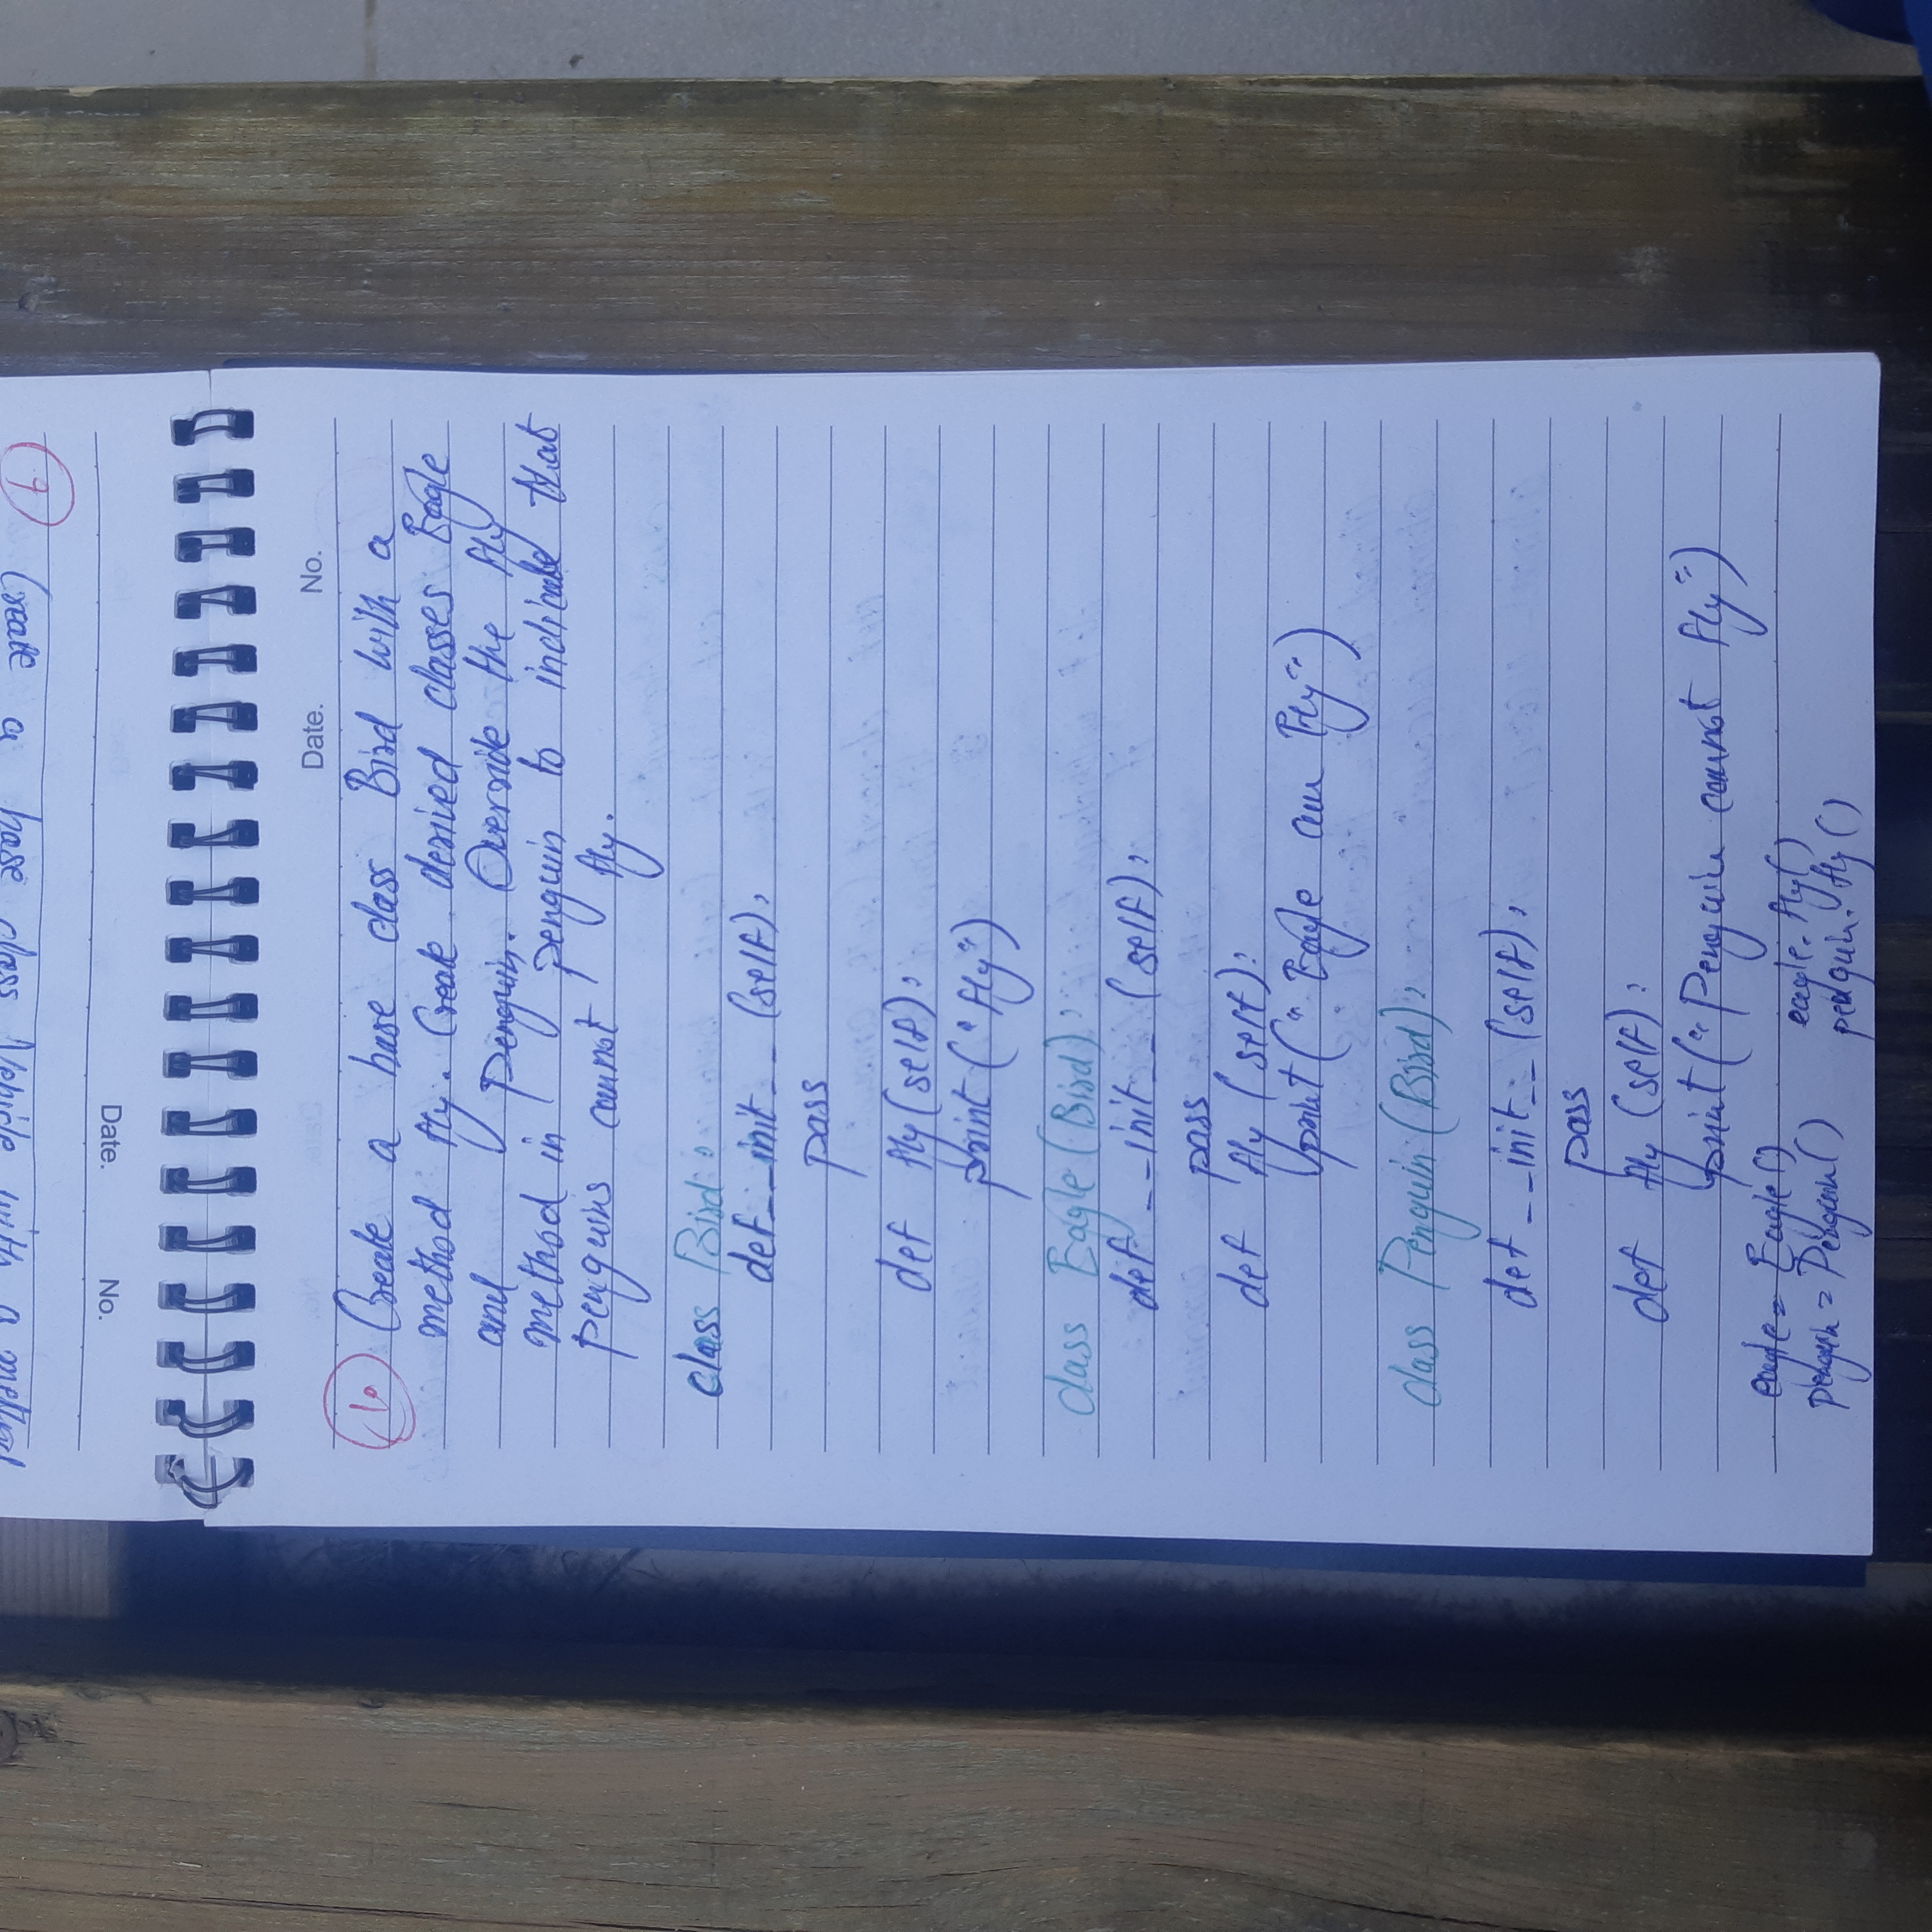 Date. No.
10 Create a base class Bird with a
method fly. Create deried classes Eagle
and Penguin. Override the fly
method in Penguin to include that
penguins cannot fly.
class Bird:
def __init__ (self):
pass
def fly (self):
print ("fly")
class Eagle (Bird):
def __init__ (self):
pass
def fly (self):
print ("Eagle can Fly")
class Penguin (Bird):
def __init__ (self):
pass
def fly (self):
print ("Penguin cannot fly")
eagle = Eagle() eagle.fly()
penguin = Penguin() penguin.fly()
No. Date.
6